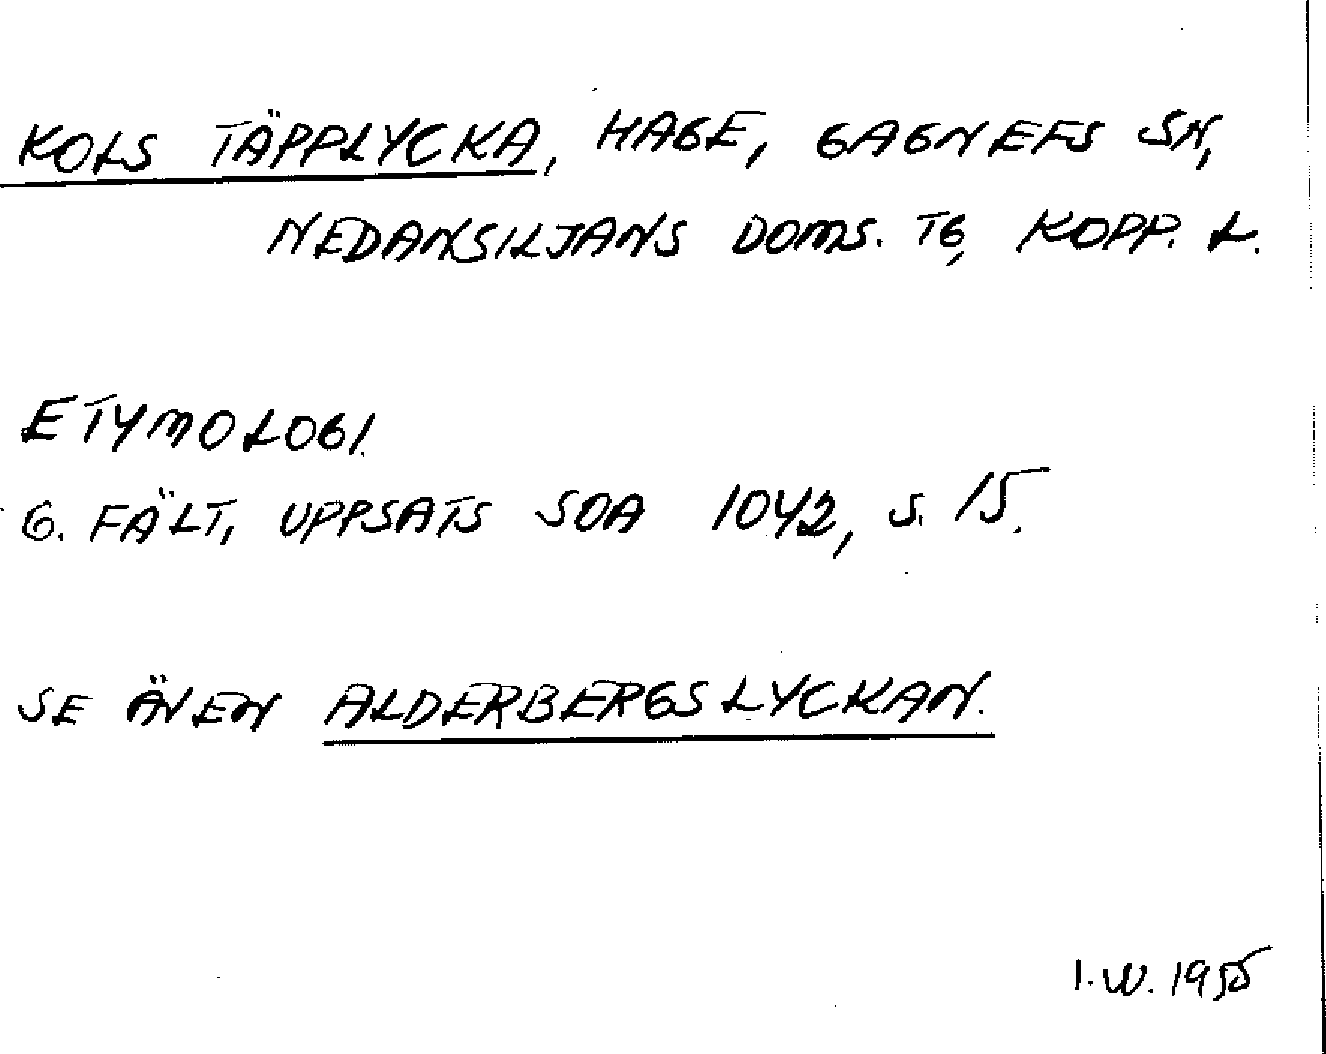 KOLS TÄPPLYCKA, HAGE, GAGNEFS SN,
NEDANSILJANS DOMS. TG, KOPP. L.
ETYMOLOGI.
G. FÄLT, UPPSATS SOA 1042, S. 15.
SE ÄVEN ALDERBERGSLYCKAN.
I.W. 1955